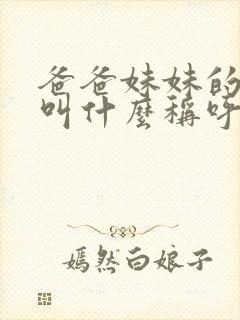 爸爸妹妹的
叫什麼稱呼
嫣然白娘子